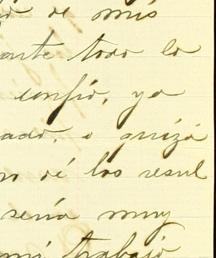 de mis
ante todo lo
confío, ya
ado, o quizá
no dé los resul
sería muy
mi trabajo